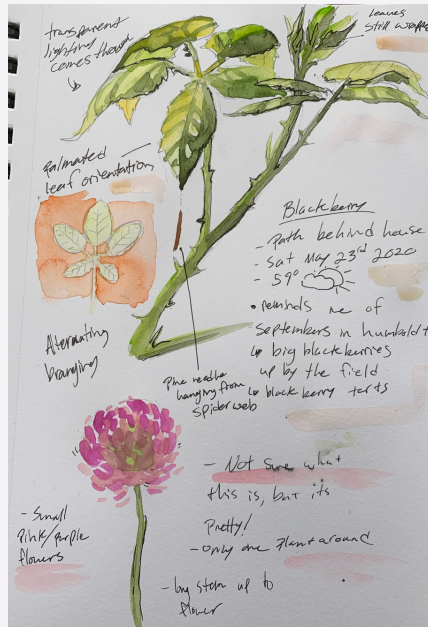 transparent
lighting
comes through
Leaves
still wrapped
Palmated
leaf orientation
Blackberry
- Path behind house
- Sat May 23rd 2020
- 59°
• reminds me of
Septembers in humboldt
↳ big blackberries
up by the field
↳ blackberry tarts
Alternating
branging
Pine needle
hanging from
spiderweb
- Not sure what
this is, but its
Pretty!
- Only one plant around
- Small
Pink/purple
flowers
- long stem up to
flower